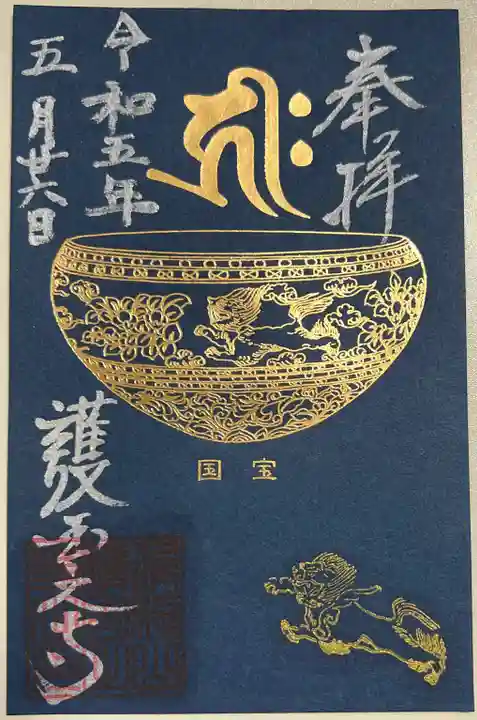 奉拝
キリーク
令和五年
五月廿六日
国宝
護国之寺